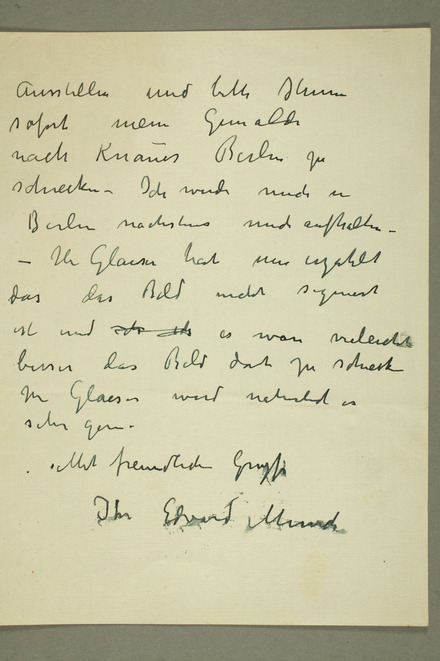 Ausstellen und bitte Ihnen
sofort mein Gemälde
nach Knaurs Berlin zu
schicken – Ich werde mich in
Berlin nächstens mich aufhalten –
– Hr Glaeser hat mir erzählt
das das Bild nicht signiert
ist und es wäre vieleicht
besser das Bild dort zu schicken
Hr Glaeser wird natürlich es
sehr gern –
Mit freundlichen Gruss
Ihr Edvard Munch